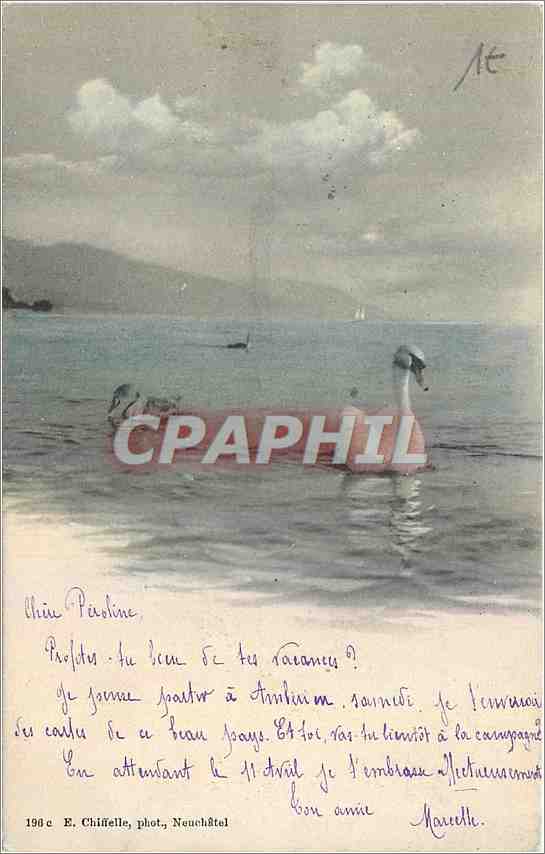 1€
CPAPHIL
Chère Péroline,
Profites-tu bien de tes vacances ?
Je pense partir à Ambérieu, samedi, je t'enverrai
des cartes de ce beau pays. Et toi, vas-tu bientôt à la campagne?
En attendant le 11 Avril je t'embrasse affectueusement
Ton amie
Marcelle.
196 c E. Chiffelle, phot., Neuchâtel